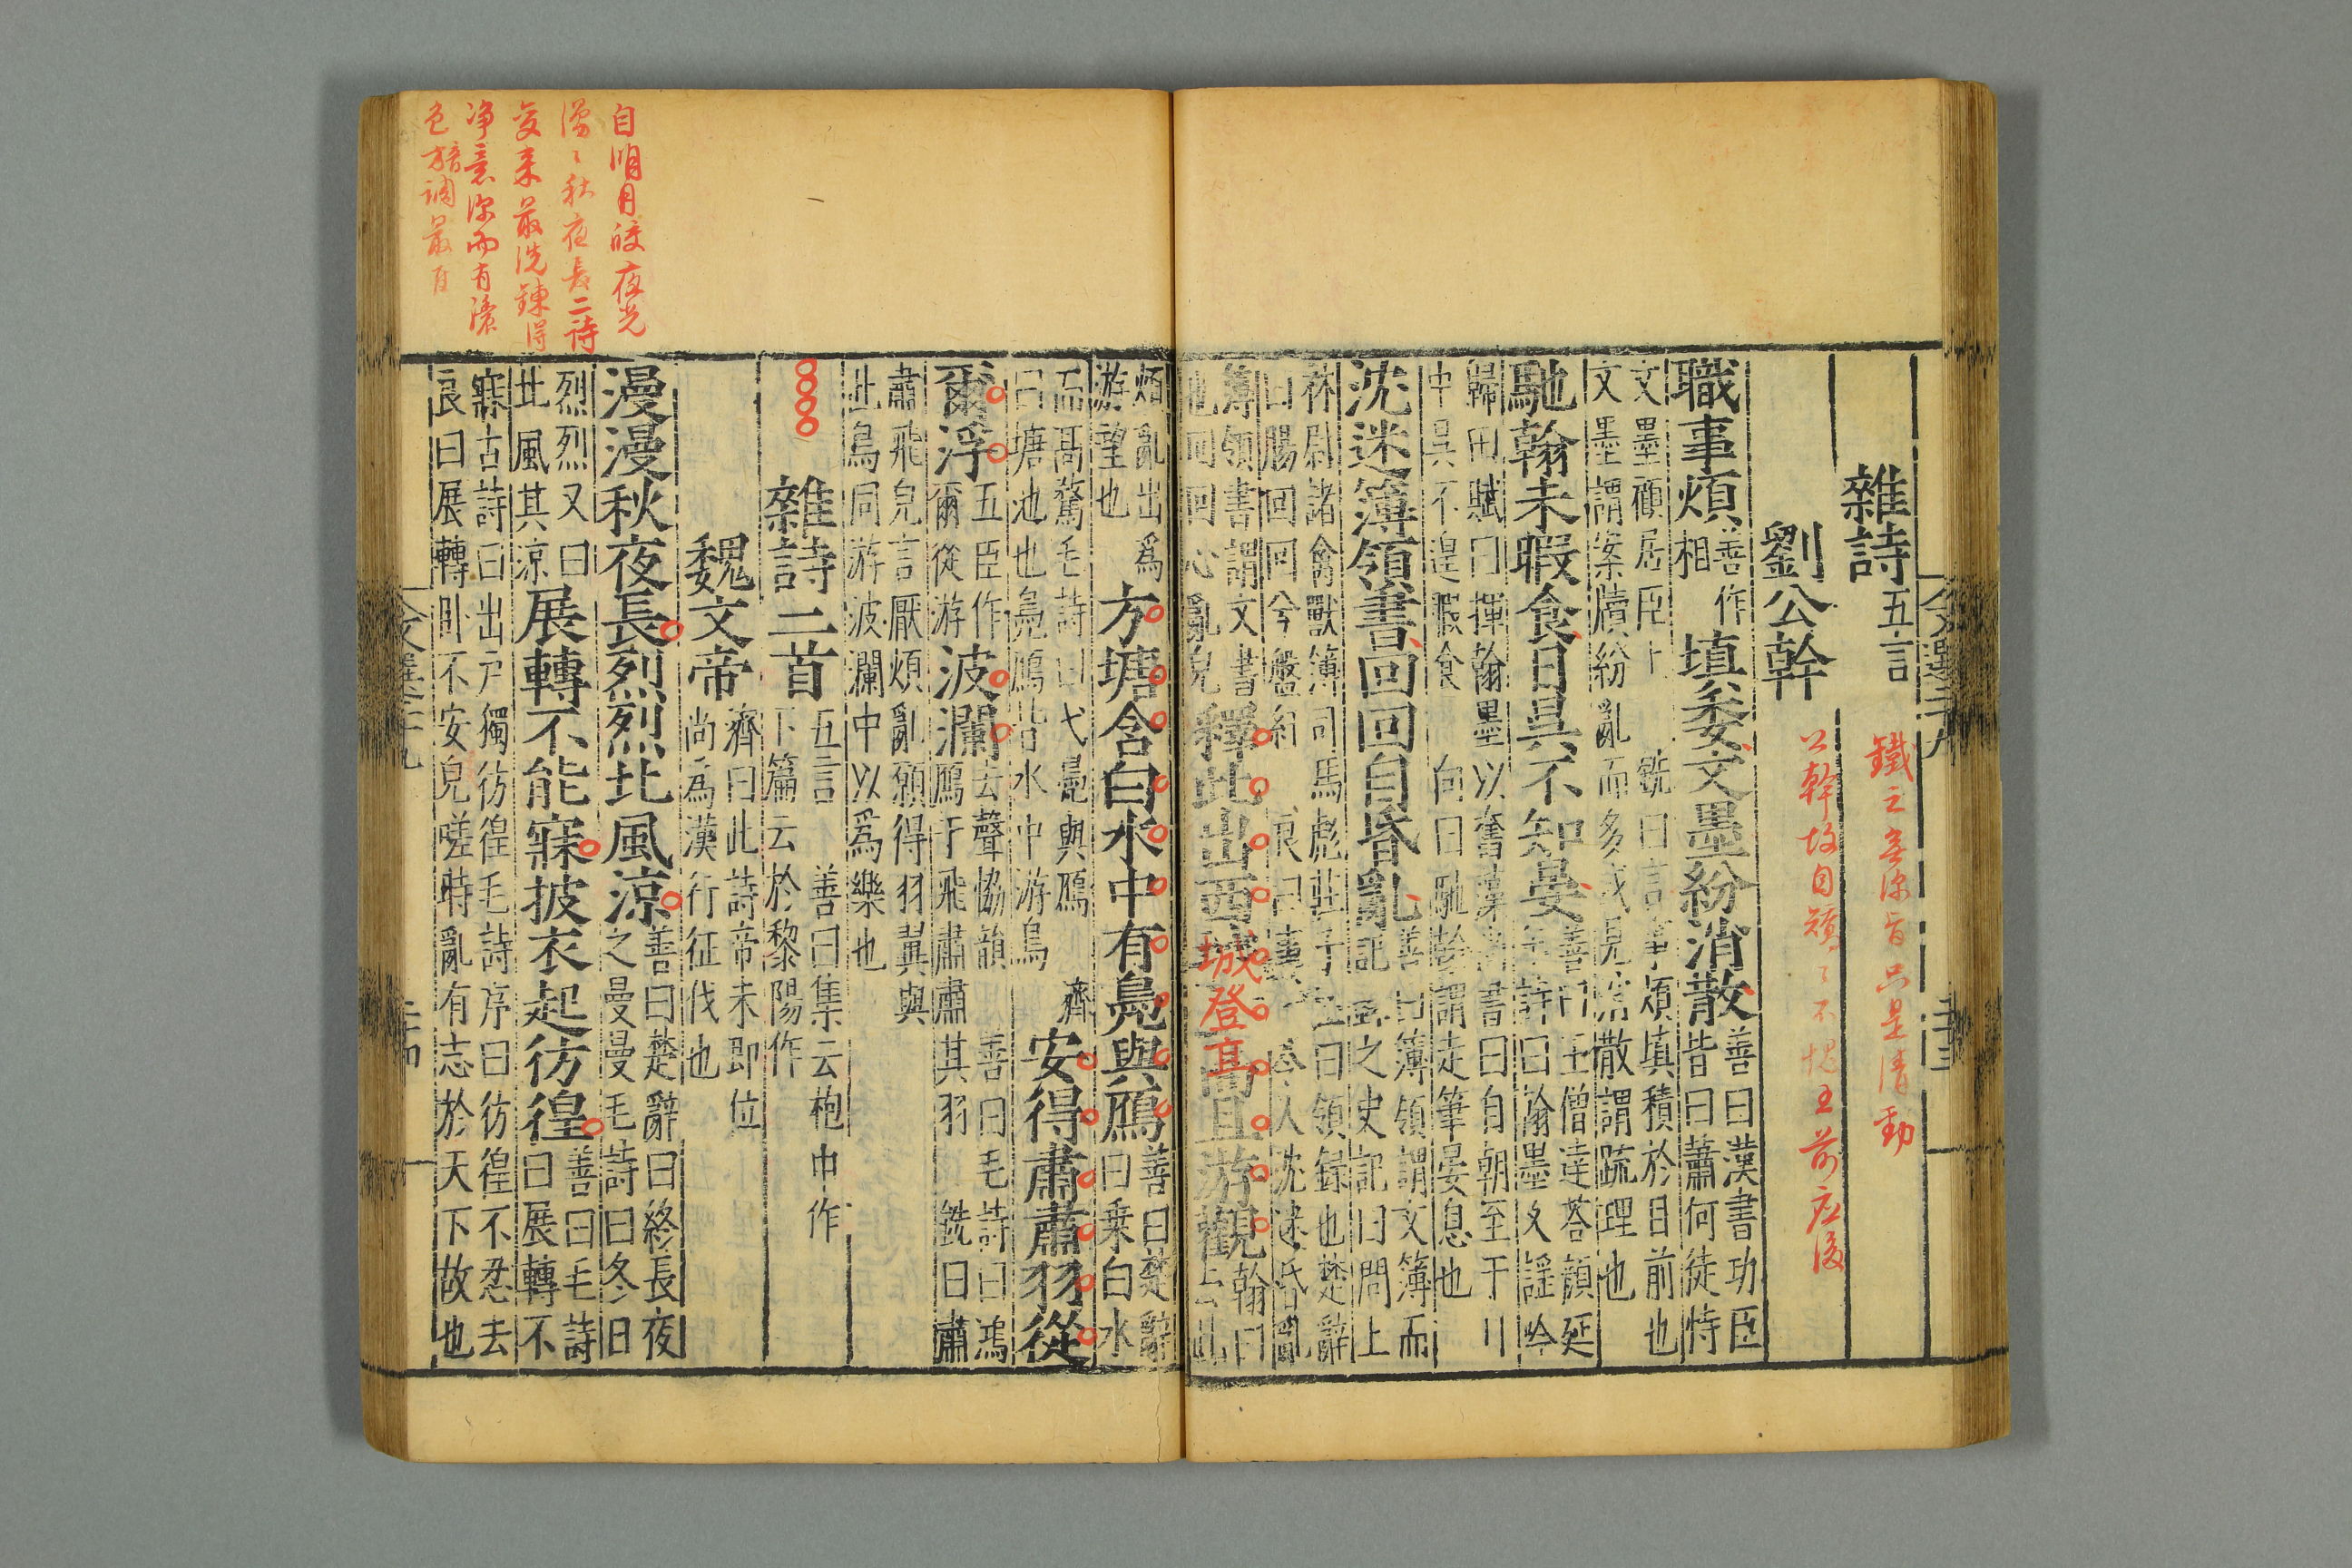 雜詩五言
鐵之無深旨只是清動
劉公幹
公幹故自磊
不愧王前
職事煩善作相填委文墨紛消散善曰漢書功臣皆曰蕭何徒恃
文墨顧居臣上 銑曰言事煩填積於目前也
文墨謂案牘紛亂而多或現消散謂疏理也
馳翰未暇食日昃不知晏善曰王僧達荅顏延年詩曰翰墨久謡吟
歸田賦曰揮翰墨以奮藻尚書曰自朝至于日
中昃不遑暇食 向曰馳翰謂走筆晏息也
沈迷簿領書回回自昏亂善曰簿領謂文簿而記録之史記曰問上
林尉諸禽獸簿司馬彪莊子注曰領録也楚辭
曰腸回回兮盤紆 良曰 令人沈迷昏亂
簿領書謂文書
也回回心亂皃釋此出西城登高且游觀翰曰言此
煩亂出爲
游望也方塘含白水中有鳧與鴈善曰楚辭曰乗白水
而高騖毛詩曰弋鳧與鴈 齊
曰塘池也鳧鴈皆水中游鳥安得肅肅羽從
爾浮五臣作爾從游波瀾去聲協韻善曰毛詩曰鴻鴈于飛肅肅其羽 銑曰肅
肅飛皃言厭煩亂願得羽翼與
此鳥同游波瀾中以爲樂也
雜詩二首五言 善曰集云枹中作下篇云於黎陽作
魏文帝齊曰此詩帝未即位尚爲漢行征伐也
漫漫秋夜長烈烈北風涼善曰楚辭曰終長夜之曼曼毛詩曰冬日
烈烈又曰
北風其涼展轉不能寐披衣起彷徨善曰毛詩曰展轉不
寐古詩曰出户獨彷徨毛詩序曰彷徨不忍去
良曰展轉卧不安皃嗟時亂有志於天下故也
文選二十九
自明月皎夜光
漫〻秋夜長二詩
変来最洗錬得
净意深而有
色